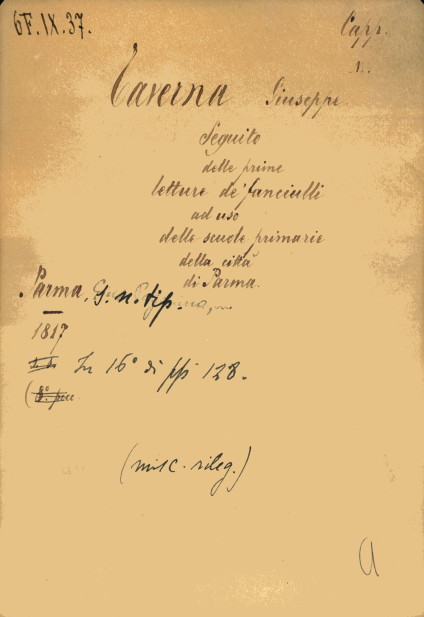 6F.IX.37.
Capp.
1.
Taverna Giuseppe.
Seguito
delle prime
letture de' fanciulli
ad uso
delle scuole primarie
della città
di Parma.
Parma, S. n. tip.
1817
In 16° di pp 128.
(8°. picc
(misc. rileg.)